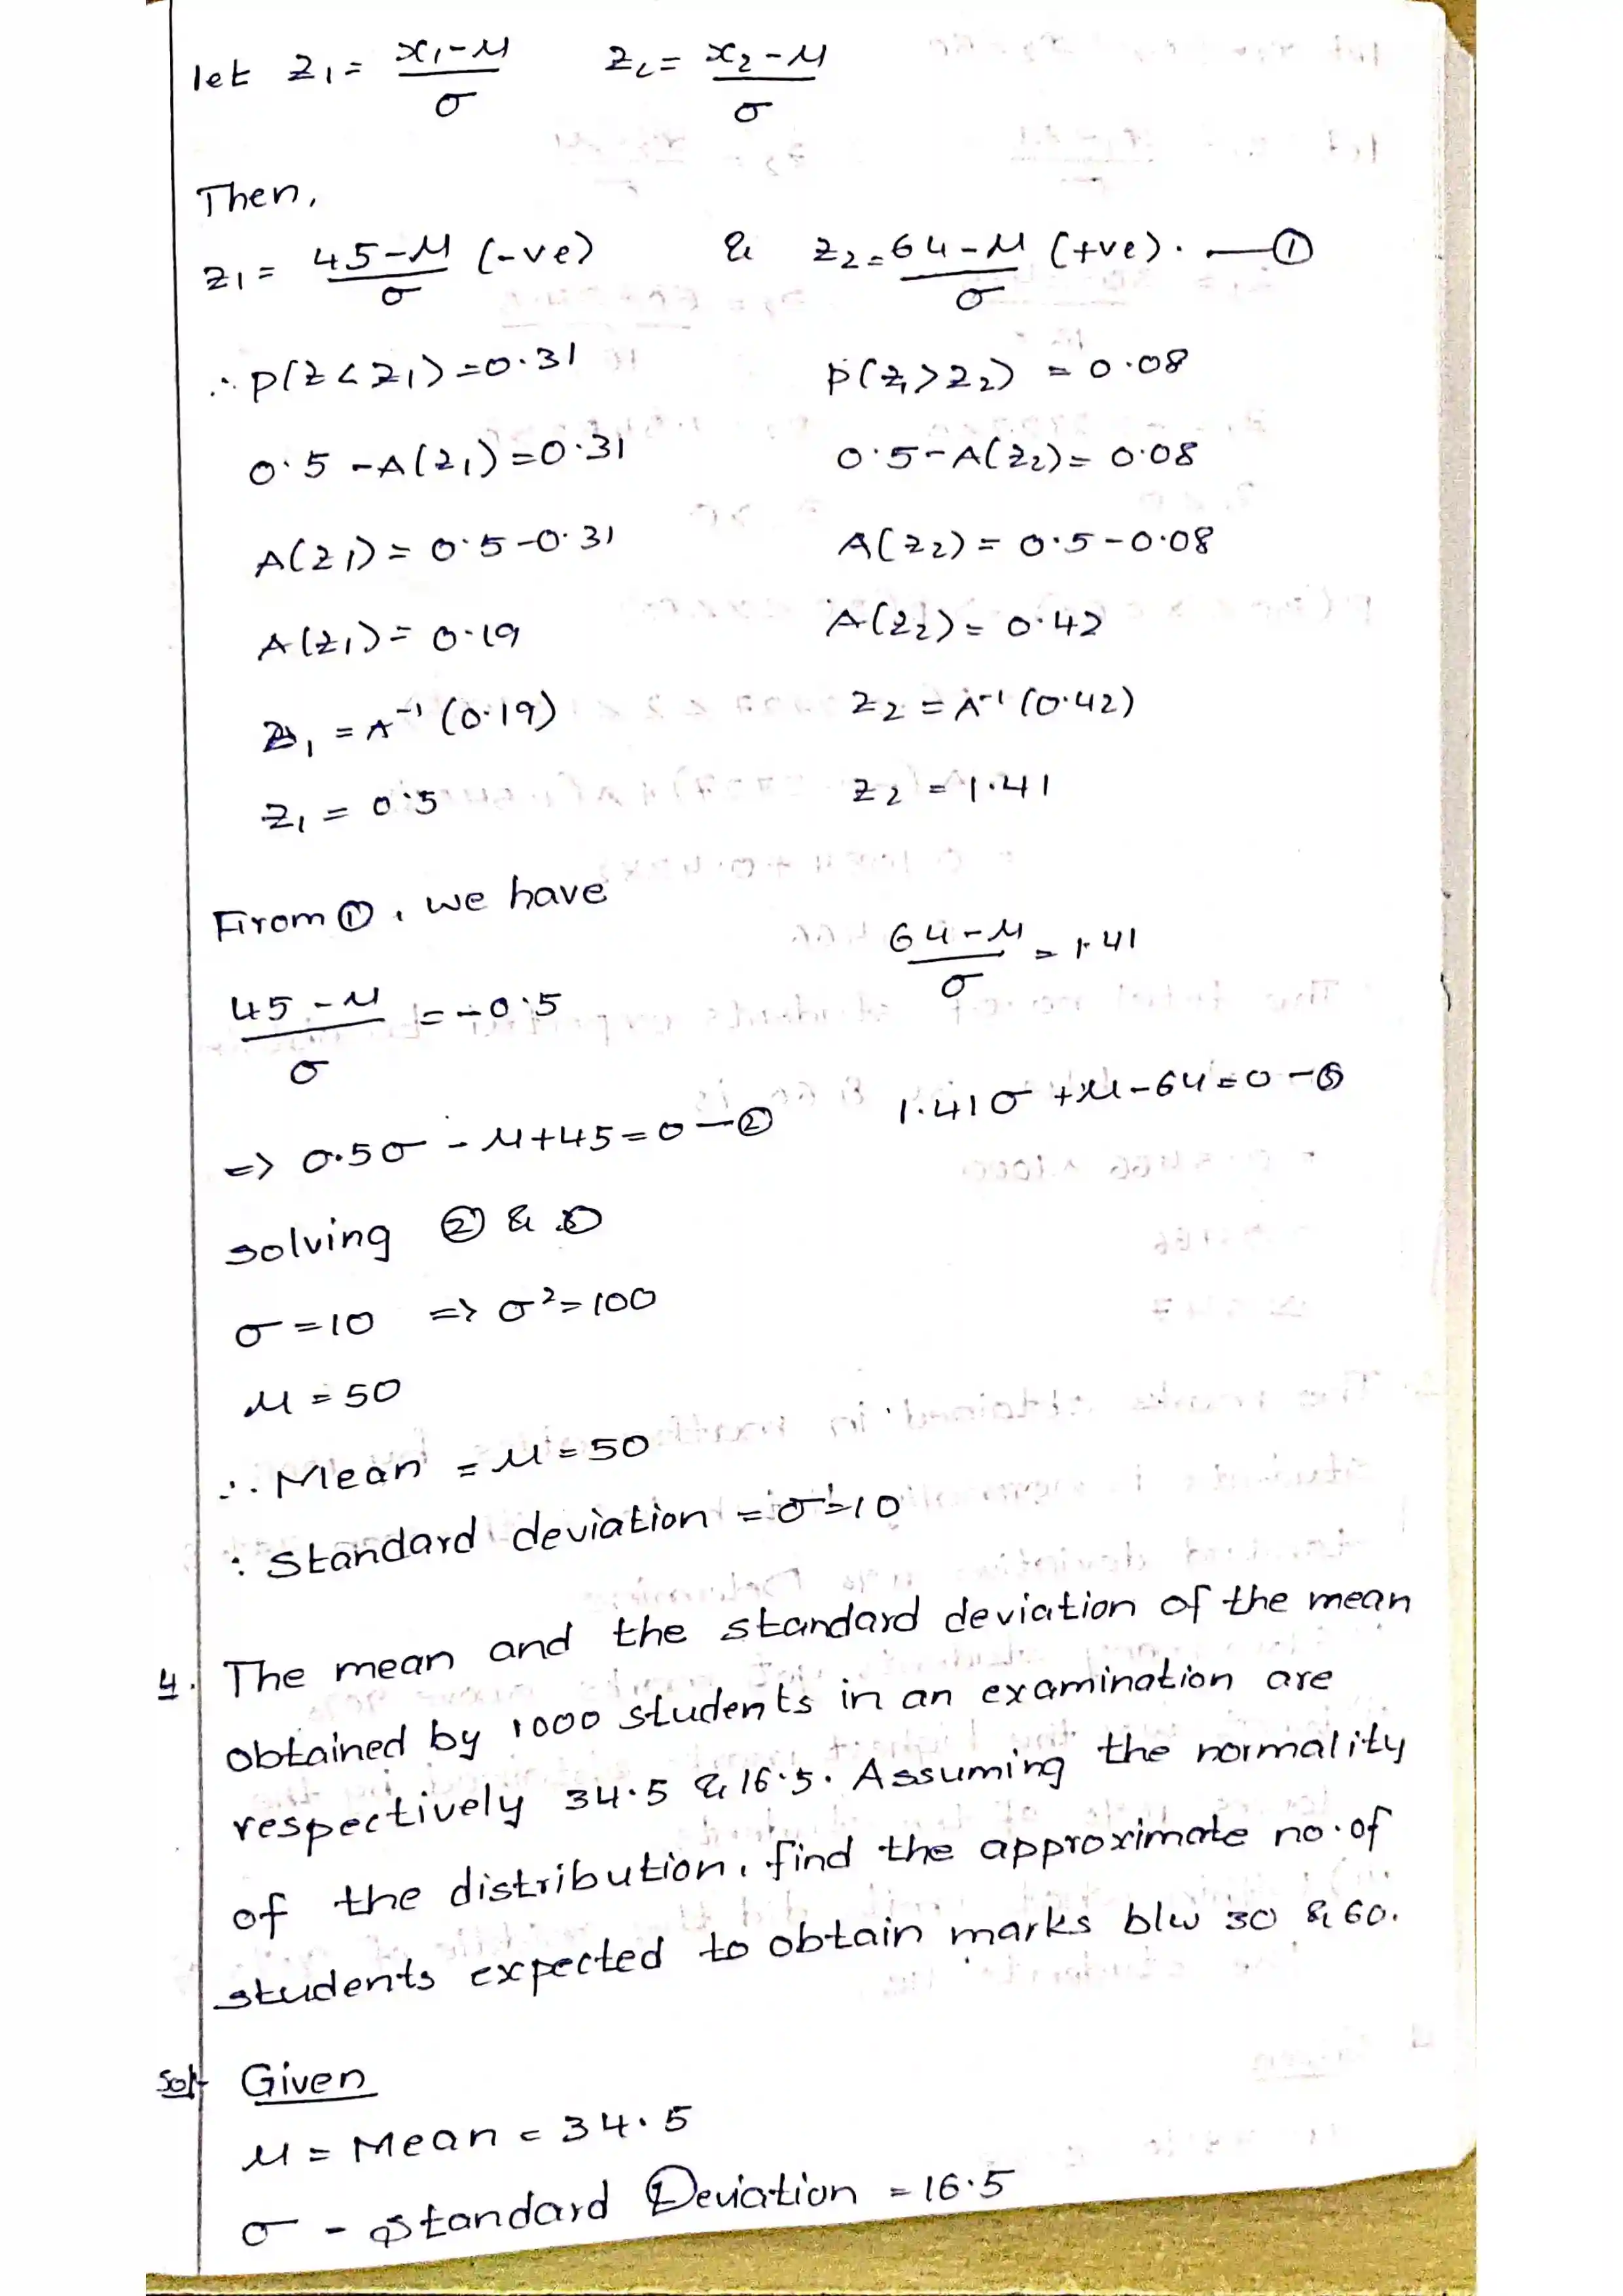 let z₁ = (x₁-μ)/σ z₂ = (x₂-μ)/σ
Then,
z₁ = (45-μ)/σ (-ve) & z₂ = (64-μ)/σ (+ve). —①
∴ p(z < z₁) = 0.31 p(z > z₂) = 0.08
0.5 - A(z₁) = 0.31 0.5 - A(z₂) = 0.08
A(z₁) = 0.5 - 0.31 A(z₂) = 0.5 - 0.08
A(z₁) = 0.19 A(z₂) = 0.42
z₁ = A⁻¹(0.19) z₂ = A⁻¹(0.42)
z₁ = 0.5 z₂ = 1.41
From ①, we have
(45-μ)/σ = -0.5 (64-μ)/σ = 1.41
=> 0.5σ - μ + 45 = 0 —② 1.41σ + μ - 64 = 0 —③
solving ② &
σ = 10 => σ² = 100
μ = 50
∴ Mean = μ = 50
: Standard deviation = σ = 10
4. The mean and the standard deviation of the mean
obtained by 1000 students in an examination are
respectively 34.5 & 16.5. Assuming the normality
of the distribution, find the approximate no. of
students expected to obtain marks blw 30 & 60.
Sol- Given
μ = Mean = 34.5
σ - Standard Deviation = 16.5